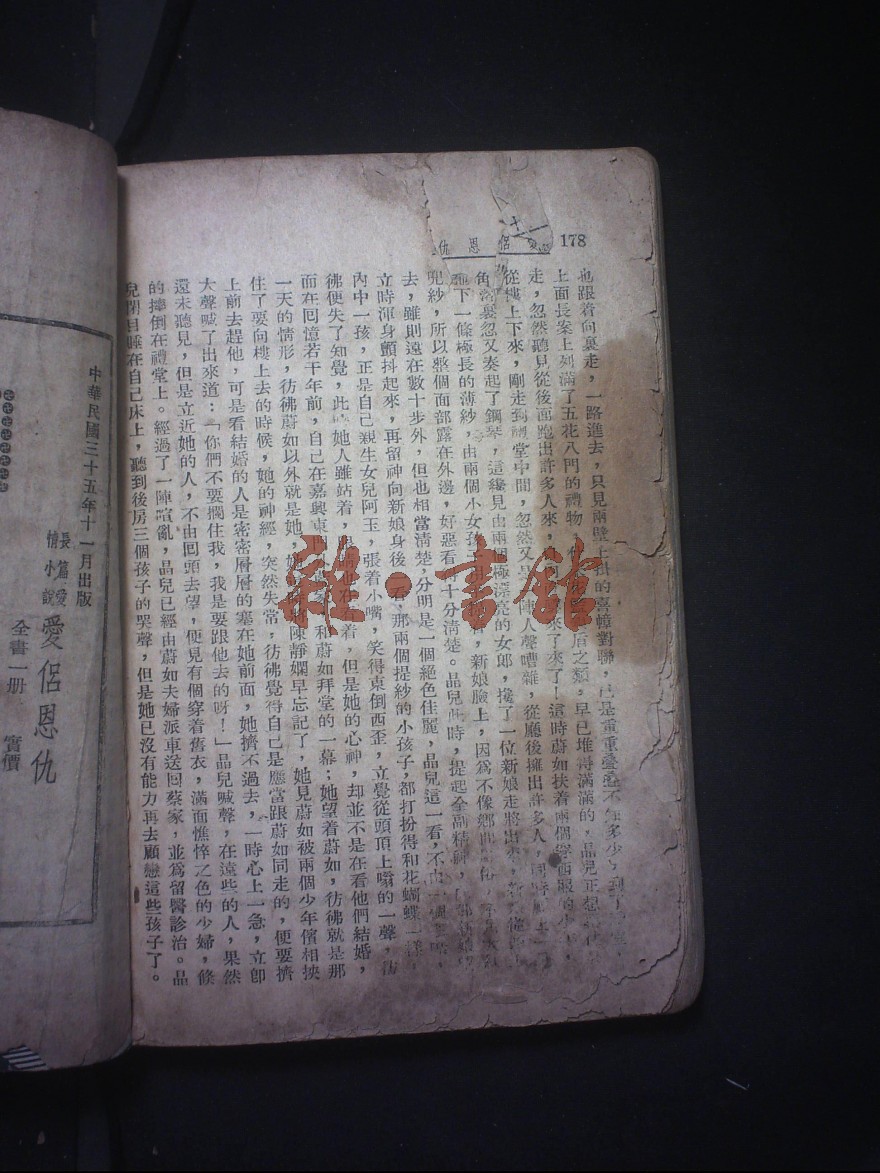 178
仇 恩 侶
也跟着向裏走，一路進去，只見兩壁上掛的喜幛對聯，已是重重疊疊不
上面長案上列滿了五花八門的禮物，之類，早已堆得滿滿的，晶兒正想
走，忽然聽見從後面跑出許多人來，來了來了！這時蔚如扶着兩個穿西服的少年，
從樓上下來，剛走到禮堂中間，忽然又是一陣人聲嘈雜，從廳後擁出許多人，
角落裏忽又奏起了鋼琴，這纔見由兩個極漂亮的女郎，攙了一位新娘走將出來，
下一條極長的薄紗，由兩個小女孩，新娘臉上，因爲不像鄉
兜紗，所以整個面部露在外邊，好惡看得十分清楚。晶兒此時，提起全副精神，
去，雖則遠在數十步外，但也相當清楚，分明是一個絕色佳麗，晶兒這一看，不由
立時渾身顫抖起來，再留神向新娘身後一看，那兩個提紗的小孩子，都打扮得和花蝴蝶一樣，
內中一孩，正是自己親生女兒阿玉，張着小嘴，笑得東倒西歪，立覺從頭頂上嗡的一聲，彷
彿便失了知覺，此時她人雖站着，但是她的心神，却並不是在看他們結婚，
面在回憶若干年前，自己在嘉興東和蔚如拜堂的一幕；她望着蔚如，彷彿就是那
一天的情形，彷彿蔚如以外就是她，陳靜嫻早忘記了，她見蔚如被兩個少年儐相挾
住了要向樓上去的時候，她的神經，突然失常，彷彿覺得自己是應當跟蔚如同走的，便要擠
上前去趕他，可是看結婚的人是密密層層的塞在她前面，她擠不過去，一時心上一急，立卽
大聲喊了出來道：「你們不要攔住我，我是要跟他去的呀！」晶兒喊聲，在遠些的人，果然
還未聽見，但是立近她的人，不由回頭去望，便見有個穿着舊衣，滿面憔悴之色的少婦，倏
的摔倒在禮堂上。經過了一陣喧亂，晶兒已經由蔚如夫婦派車送回蔡家，並爲留醫診治。晶
兒閉目睡在自己床上，聽到後房三個孩子的哭聲，但是她已沒有能力再去顧戀這些孩子了。
中華民國三十五年十一月出版
長篇愛
情小說
愛侶恩仇
全書一冊
實價
雜·書館